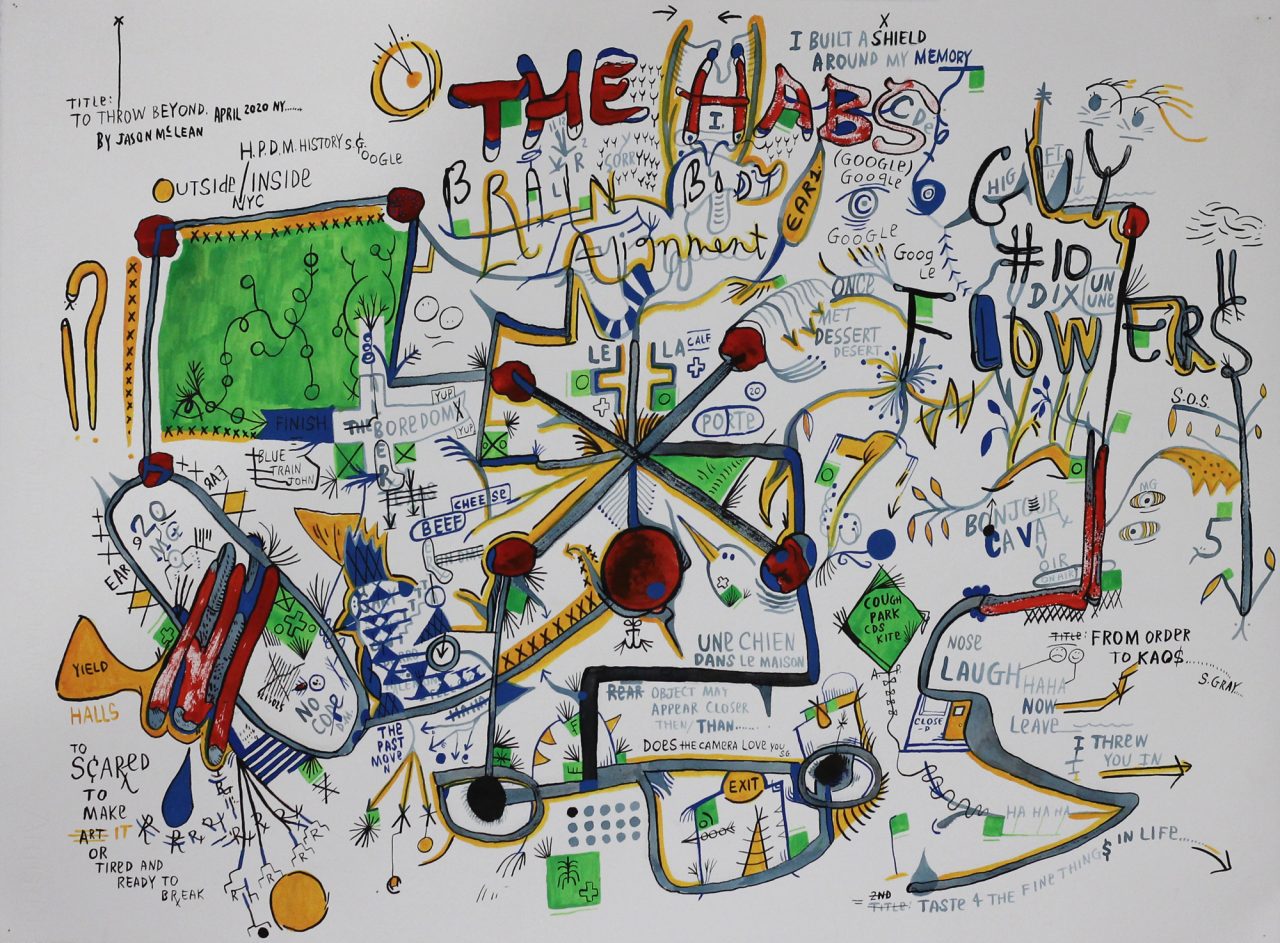 TITLE:
TO THROW BEYOND. APRIL 2020 NY......
BY JASON McLEAN
H.P.D.M. HISTORY S.G.
OOGLE
OUTSIDE/INSIDE
NYC
THE HABS
I.
C De
I BUILT A SHIELD
AROUND MY MEMORY
BRAIN BODY
Alignment
SORRY
EAR 1.
(GOOGLE)
GOOGLE
GOOGLE
GOOG
LE
HIG
FT.
12
GUY
#10
DIX
UN
UNE
FLOWERS
ONCE
MET
DESSERT
DESERT
LE LA
CALF
20
PORTE
FINISH
THE BOREDOM X
YUP
YUP
BLUE
TRAIN
JOHN
EAR
BEEF
CHEESE
S.O.S.
MG
BONJOUR
CAVA
VOIR
ON AIR
5
EAR
NO
CODE
YIELD
HALLS
COUGH
PARK
CDS
KITE
UNE CHIEN
DANS LE MAISON
REAR OBJECT MAY
APPEAR CLOSER
THEN/THAN......
DOES THE CAMERA LOVE YOU SG
HA HA
THE
PAST
MOVE
N
EXIT
NOSE
LAUGH
HAHA
NOW
LEAVE
CLOSE
-D
TITLE: FROM ORDER
TO KAO$......
S.GRAY...
I THREW
YOU IN
HA HA HA
TO
SCARED
TO
MAKE
ART IT
OR
TIRED AND
READY TO
BREAK
= 2ND
TITLE: TASTE & THE FINE THING$ IN LIFE...